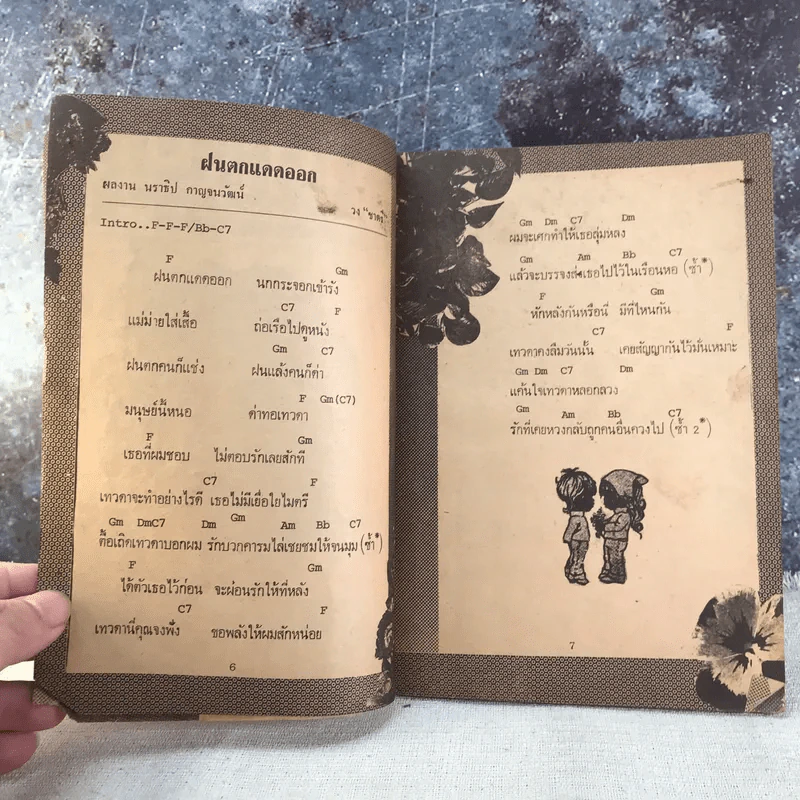 ฝนตกแดดออก
ผลงาน นราธิป กาญจนวัฒน์
วง "ชาตรี"
Intro..F-F-F/Bb-C7
F Gm
ฝนตกแดดออก นกกระจอกเข้ารัง
C7 F
แม่ม่ายใส่เสื้อ ถ่อเรือไปดูหนัง
Gm C7
ฝนตกคนก็แช่ง ฝนแล้งคนก็ด่า
F Gm(C7)
มนุษย์นี้หนอ ด่าทอเทวดา
F Gm
เธอที่ผมชอบ ไม่ตอบรักเลยสักที
C7 F
เทวดาจะทำอย่างไรดี เธอไม่มีเยื่อใยไมตรี
Gm DmC7 Dm Gm Am Bb C7
ถือเถิดเทวดาบอกผม รักบวกคารมไล่เชยชมให้จนมุม (ซ้ำ*)
F Gm
ได้ตัวเธอไว้ก่อน จะผ่อนรักให้ที่หลัง
C7 F
เทวดานี่คุณจงฟัง ขอพลังให้ผมสักหน่อย
6
Gm Dm C7 Dm
ผมจะเศกทำให้เธอลุ่มหลง
Gm Am Bb C7
แล้วจะบรรจงส่งเธอไปไว้ในเรือนหอ (ซ้ำ*)
F Gm
หักหลังกันหรือนี่ มีที่ไหนกัน
C7 F
เทวดาคงลืมวันนั้น เคยสัญญากันไว้มั่นเหมาะ
Gm Dm C7 Dm
แค้นใจเทวดาหลอกลวง
Gm Am Bb C7
รักที่เคยหวงกลับถูกคนอื่นควงไป (ซ้ำ 2*)
7